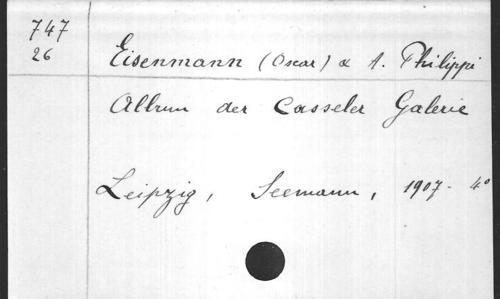 747
26
Eisenmann (Oscar) & A. Philippi
Album der Casseler Galerie
Leipzig, Seemann, 1907 - 4°